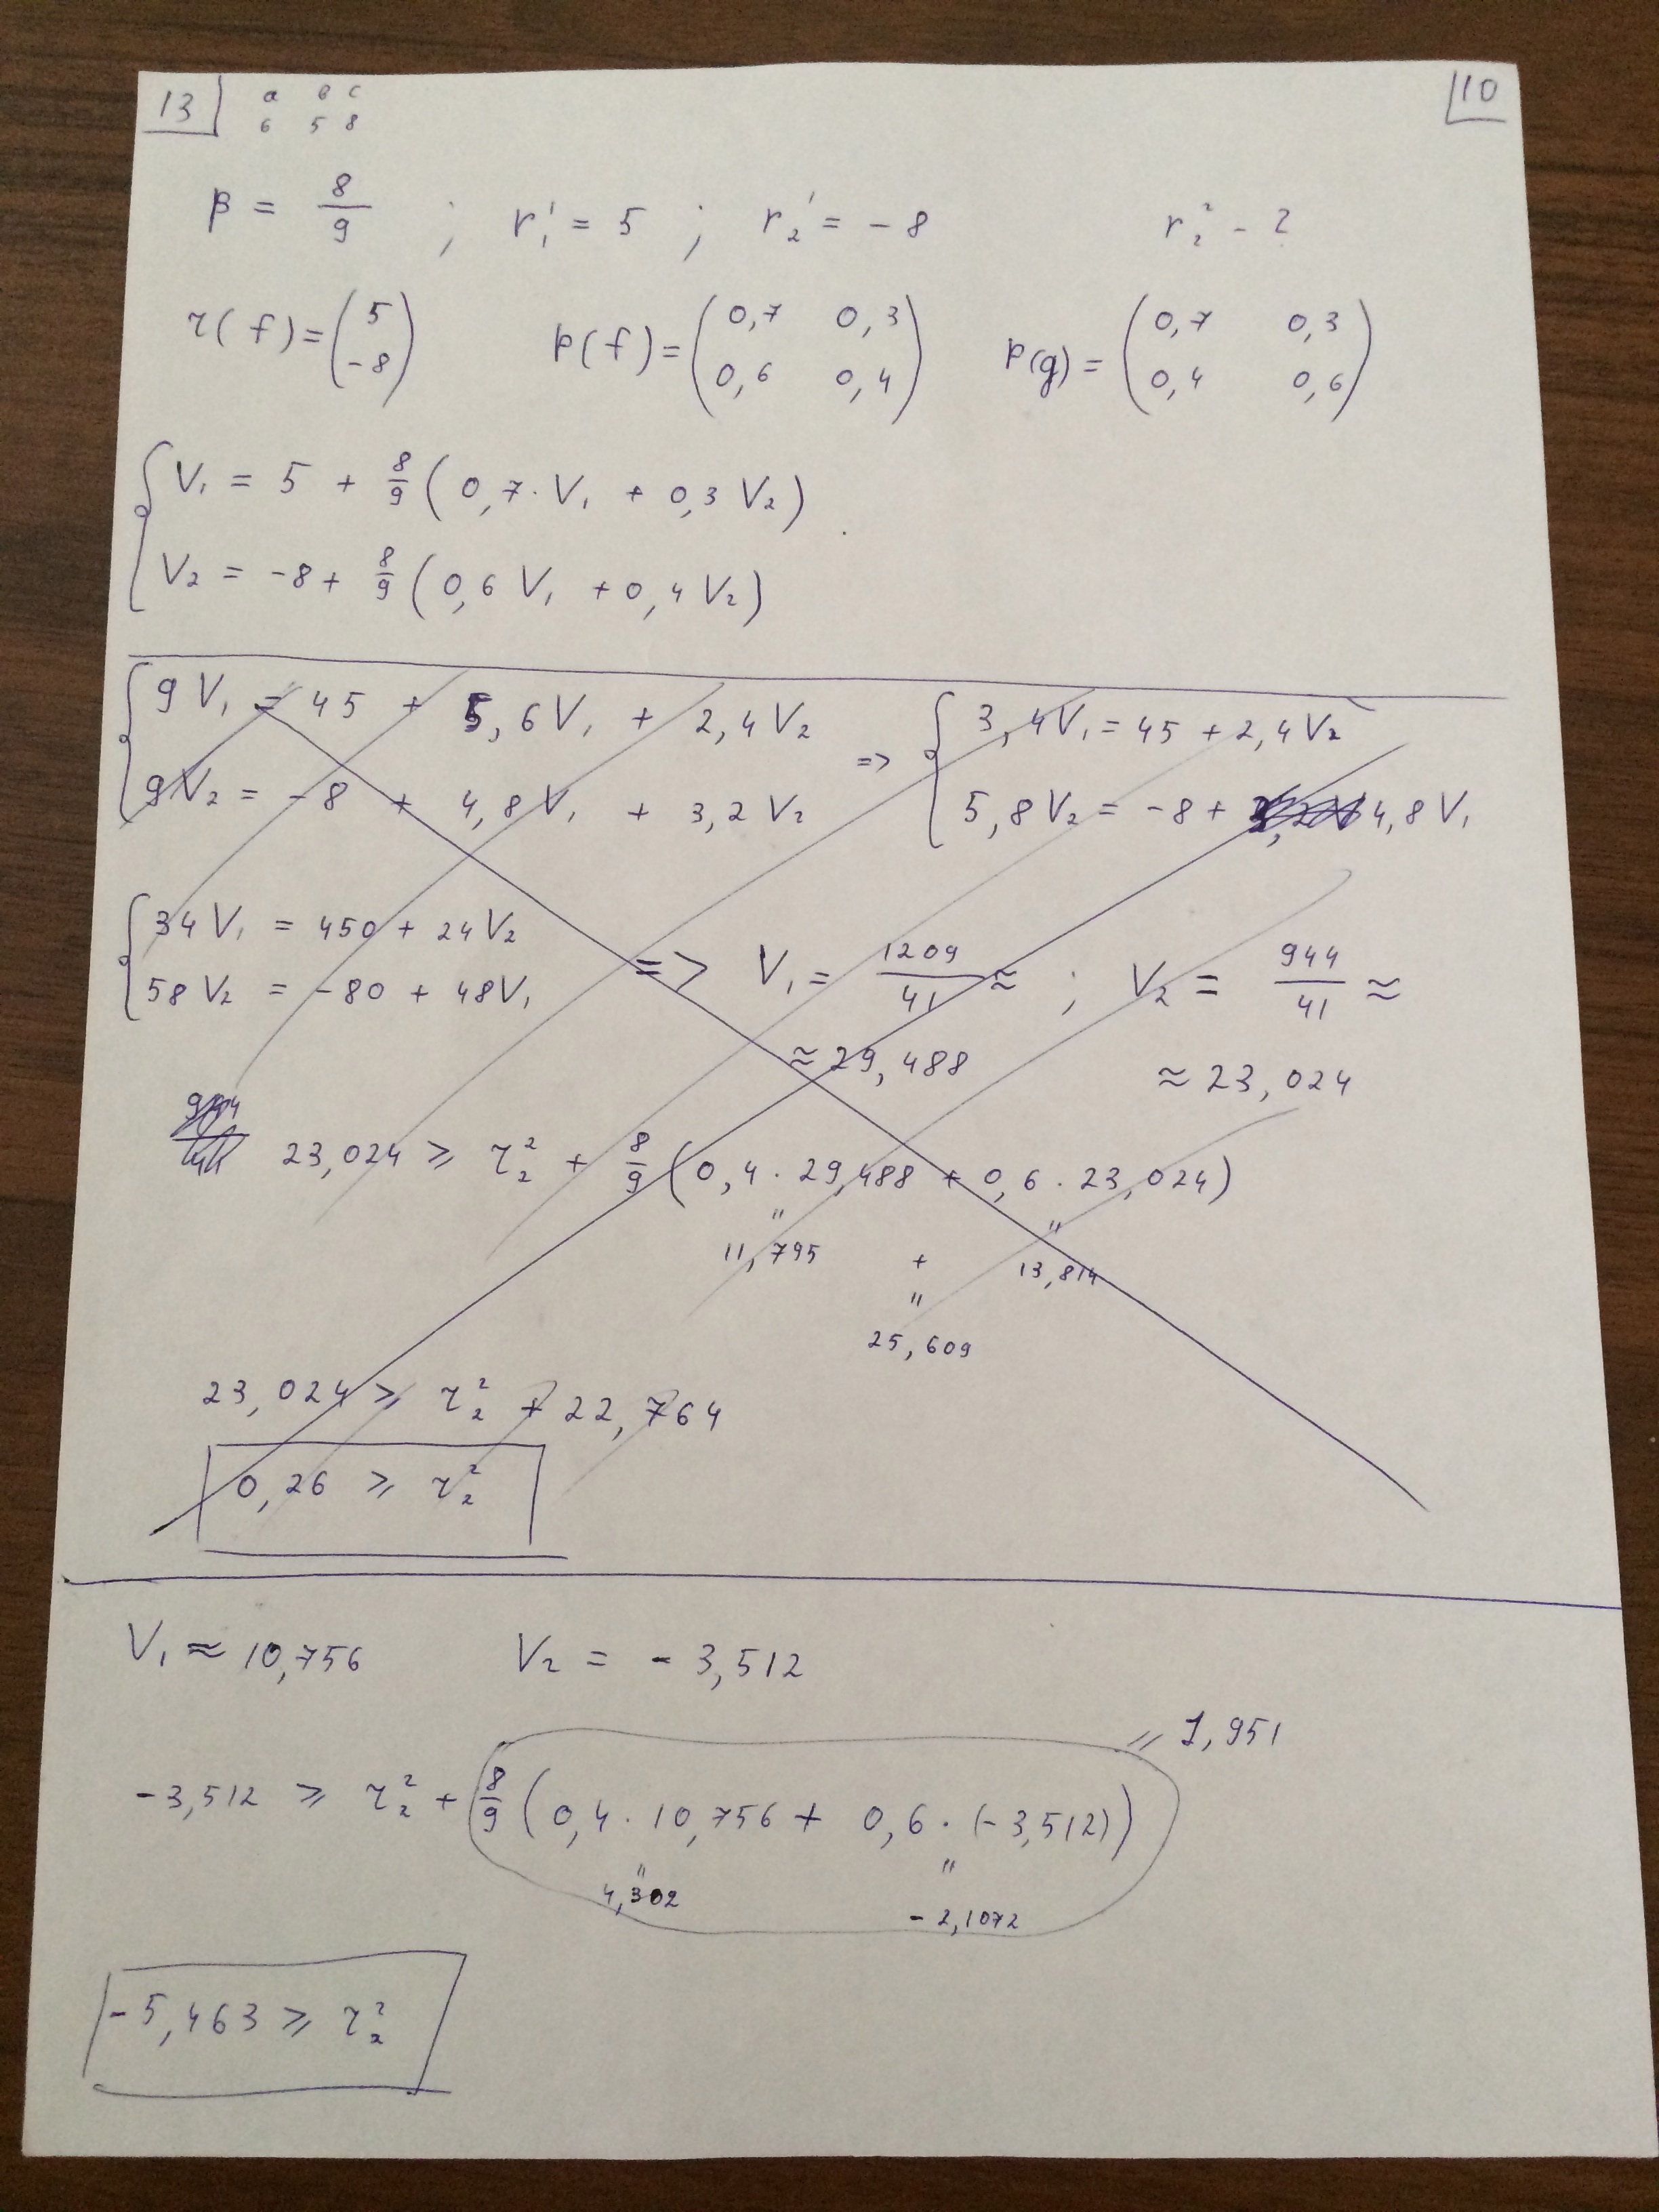 13 a b c 10
6 5 8
β = 8/9 ; r₁¹ = 5 ; r₂¹ = -8 r₂² - ?
r(f) = (5 -8) p(f) = (0,7 0,3 0,6 0,4) p(g) = (0,7 0,3 0,4 0,6)
V₁ = 5 + 8/9 (0,7 · V₁ + 0,3 V₂)
V₂ = -8 + 8/9 (0,6 V₁ + 0,4 V₂)
9 V₁ = 45 + 5,6 V₁ + 2,4 V₂ => 3,4 V₁ = 45 + 2,4 V₂
9 V₂ = -8 + 4,8 V₁ + 3,2 V₂ 5,8 V₂ = -8 + 4,8 V₁
34 V₁ = 450 + 24 V₂
58 V₂ = -80 + 48 V₁ => V₁ = 1209/41 ≈ ; V₂ = 944/41 ≈
≈ 29,488 ≈ 23,024
23,024 ⩾ r₂² + 8/9 (0,4 · 29,488 + 0,6 · 23,024)
" "
11,795 + 13,814
"
25,609
23,024 ⩾ r₂² + 22,764
0,26 ⩾ r₂²
V₁ ≈ 10,756 V₂ = - 3,512
= 1,951
-3,512 ⩾ r₂² + 8/9 (0,4 · 10,756 + 0,6 · (-3,512))
" "
4,302 - 2,1072
- 5,463 ⩾ r₂²